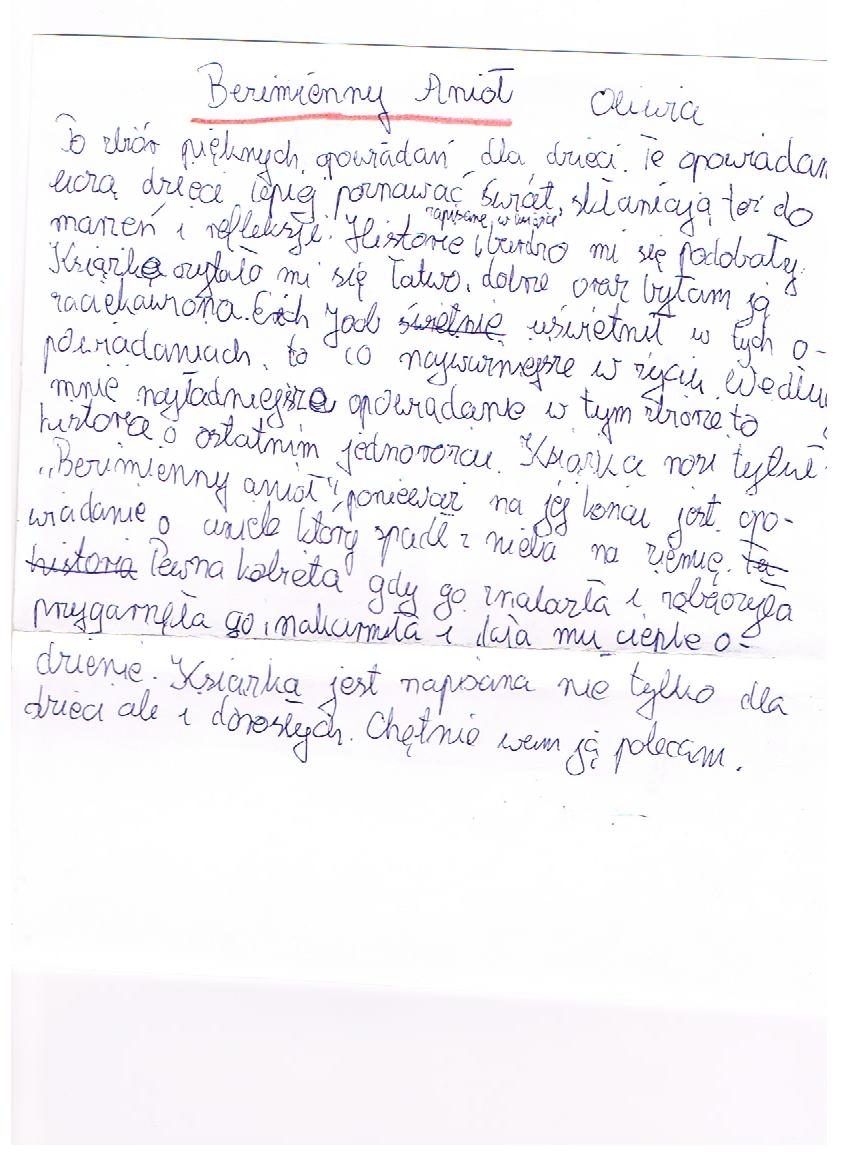 Bezimienny Anioł Oliwia
To zbiór pięknych opowiadań dla dzieci. Te opowiadan
uczą dzieci lepiej poznawać świat, skłaniają też do
marzeń i refleksji. Historie zapisane w książce bardzo mi się podobały.
Książkę czytało mi się łatwo, dobrze oraz byłam ją
zaciekawiona. Erich Jooß świetnie uświetnił w tych o-
powiadaniach, to co najważniejsze w życiu. Według
mnie najładniejsze opowiadanie w tym zbiorze to
historia o ostatnim jednorożcu. Książka nosi tytuł
„Bezimienny anioł", ponieważ na jej końcu jest opo-
wiadanie o aniele który spadł z nieba na ziemię. ta
historia Pewna kobieta gdy go znalazła i zobaczyła
przygarnęła go, nakarmiła i dała mu ciepłe o-
dzienie. Książka jest napisana nie tylko dla
dzieci ale i dorosłych. Chętnie wam ją polecam.